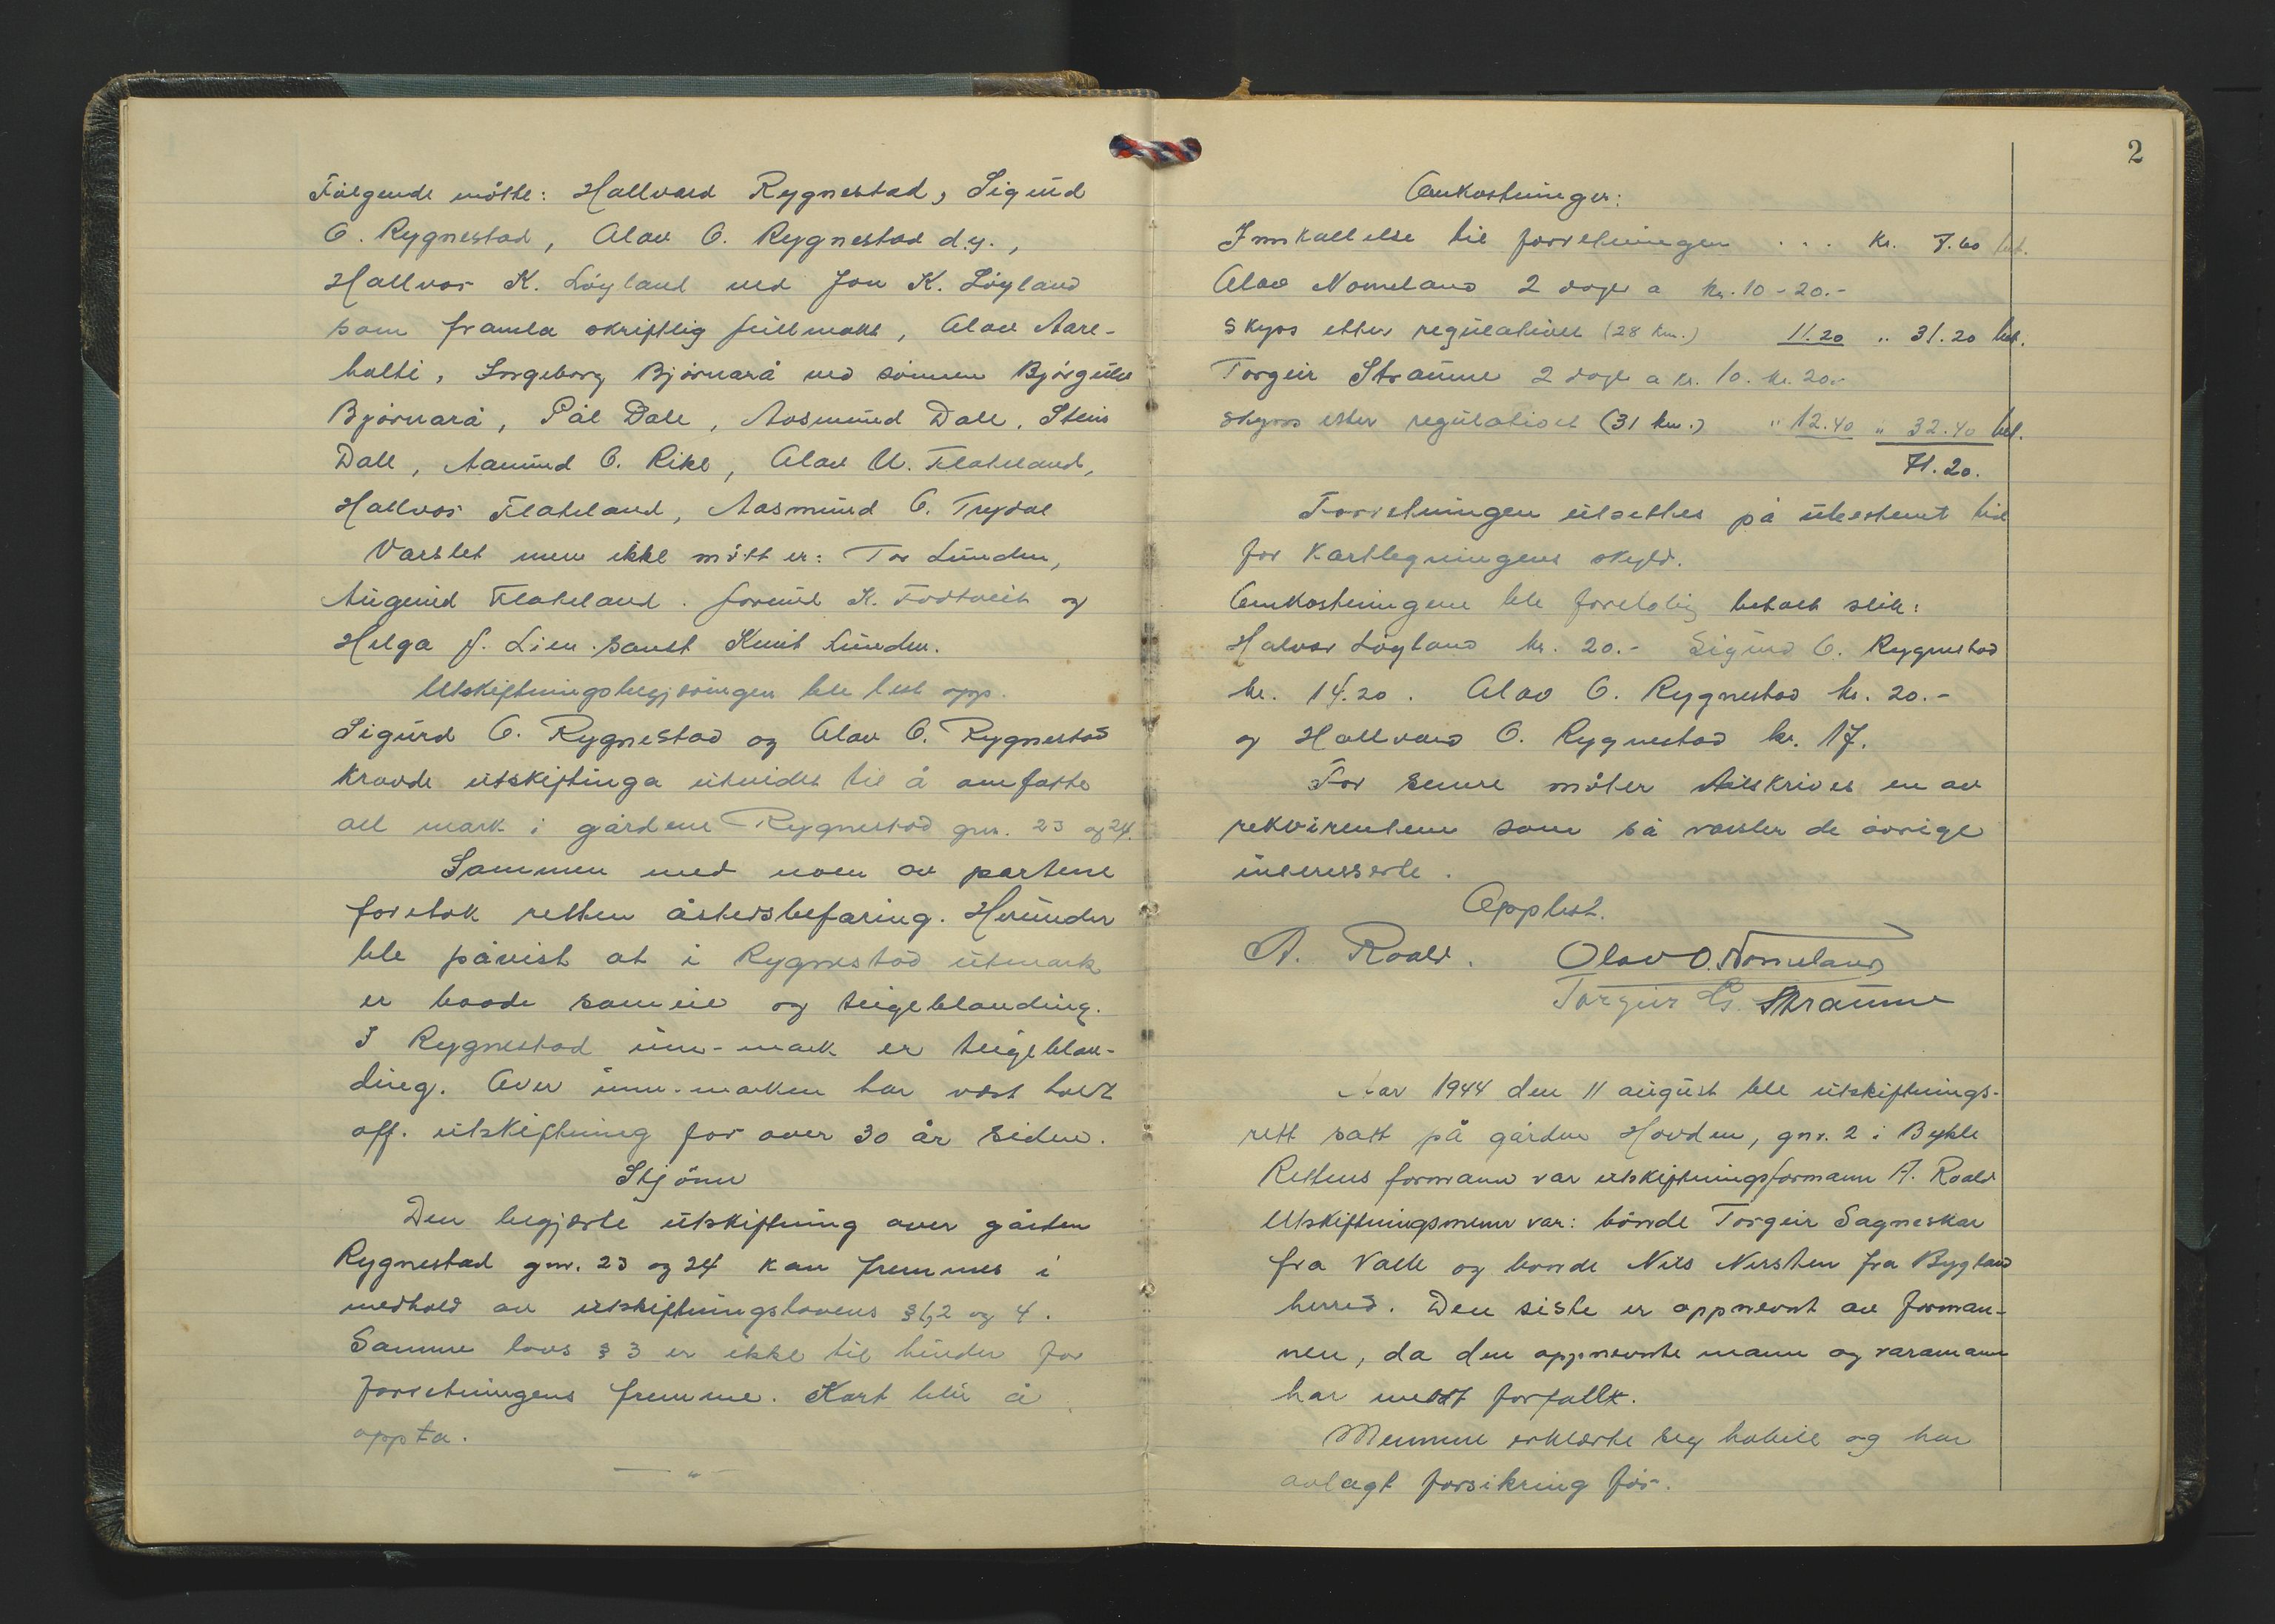 Følgende møtte: Hallvard Rygnestad, Sigurd
O. Rygnestad, Olav O. Rygnestad d.y.,
Hallvor K. Løyland ved Jon K. Løyland
som framla skriftlig fullmakt, Olav Aare-
holti, Ingeborg Bjørnarå ved sønnen Bjørgulv
Bjørnarå, Pål Dale, Aasmund Dale, Stein
Dale, Aamund O. Rike, Olav U. Flateland,
Hallvor Flateland, Aasmund O. Trydal
Varslet men ikke møtt er: Tor Lunden,
Augund Flateland. forsind K. Fodtveit og
Helga J. Lien. samt Knut Lunden.
Utskiftningsbegjæringen ble lest opp.
Sigurd O. Rygnestad og Olav O. Rygnestad
kravde utskiftinga utvidet til å omfatte
all mark i gårdene Rygnestad gnr. 23 og 24.
Sammen med noen av partene
foretok retten åstedsbefaring. Herunder
ble påvist at i Rygnestad utmark
er baade sameie og teigeblanding.
I Rygnestad inn-mark er teigeblan-
ding. Over inn-marken har vært holdt
off. utskiftning for over 30 år siden.
Skjønn
Den begjærte utskiftning over gården
Rygnestad gnr. 23 og 24 kan fremmes i
medhold av utskiftningslovens § 1, 2 og 4.
Samme lovs § 3 er ikke til hinder for
forretningens fremme. Kart blir å
oppta.
— " —
2
Omkostninger:
Innkallelse til forretningen ... kr. 7.60 bet.
Olav Nomeland 2 dager a kr. 10 - 20.-
Skyss etter regulativet (28 km.) 11.20 " 31.20 bet.
Torgeir Straume 2 dage a kr. 10. kr. 20.-
skyss etter regulativet (31 km.) " 12.40 " 32.40 bet.
71.20.
Forretningen utsettes på ubestemt tid
for kartlegningens skyld.
Omkostningene ble foreløbig betalt slik:
Halvor Løyland kr. 20.- Sigurd O. Rygnestad
kr. 14.20. Olav O. Rygnestad kr. 20.-
og Hallvard O. Rygnestad kr. 17.
For senere møter tilskrives en av
rekvirentene som så varsler de øvrige
interesserte.
Opplest.
A. Roald. Olav O. Nomeland
Torgeir G. Straume
Aar 1944 den 11 august ble utskiftnings-
rett satt på gården Hovden, gnr. 2 i Bykle
Rettens formann var utskiftningsformann A. Roald
Utskiftningsmenn var: bonde Torgeir Sagneskar
fra Valle og bonde Nils Nersten fra Bygland
herred. Den siste er oppnevnt av forman-
nen, da den oppnevnte mann og varamann
har meldt forfall.
Mennene erklærte seg habile og har
avlagt forsikring før.